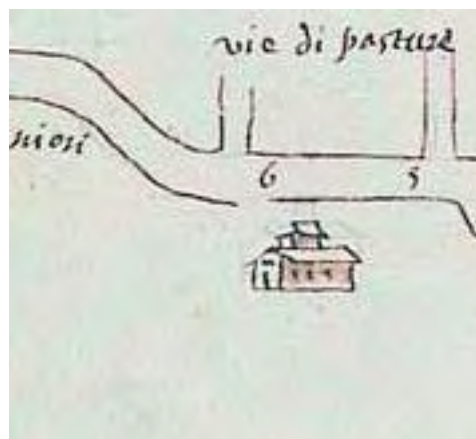 vie di pasture
nioni
6 5